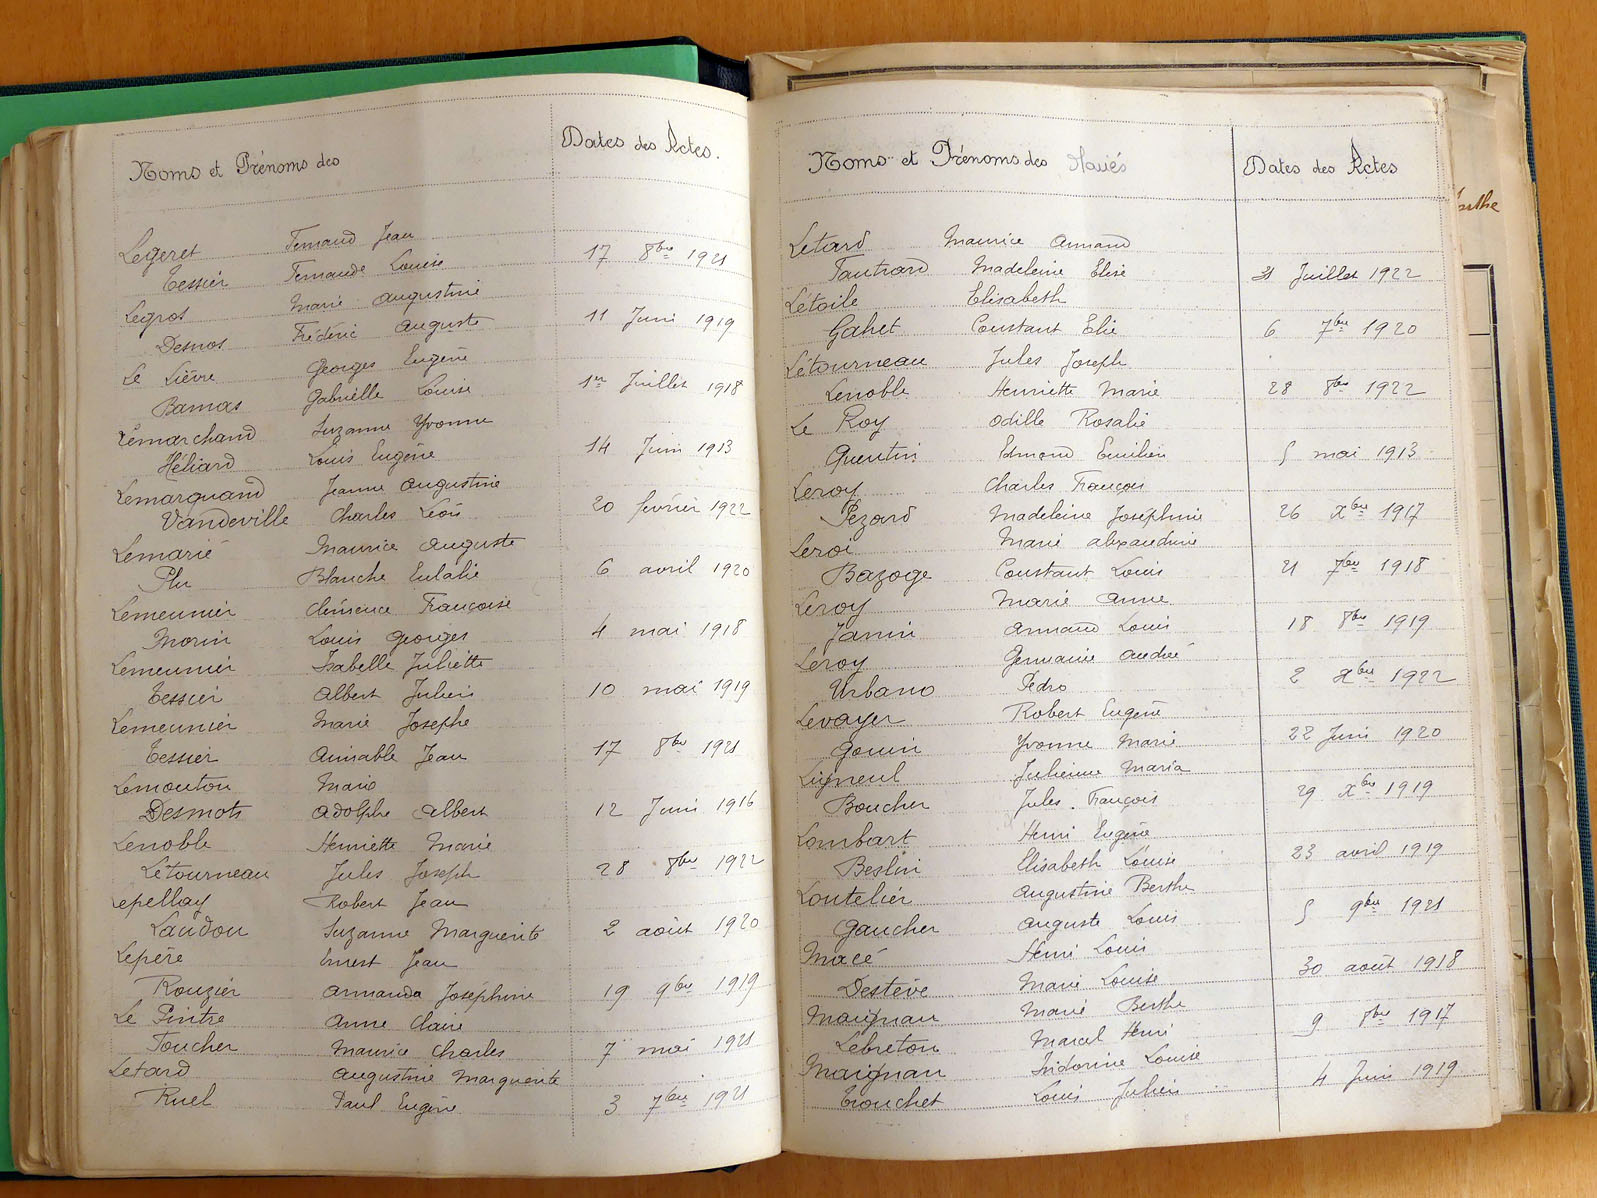 Noms et Prénoms des
Dates des Actes.
Legeret Fernand Jean
Tessier Fernande Louise 17 8bre 1921
Legros Marie Augustine
Desnos Frédéric Auguste 11 Juin 1919
Le Lièvre Georges Eugène
Bamas Gabrielle Louise 1er Juillet 1918
Lemarchand Suzanne Yvonne
Héliard Louis Eugène 14 Juin 1913
Lemarquand Jeanne Augustine
Vandeville Charles Léon 20 février 1922
Lemarié Maurice Auguste
Plu Blanche Eulalie 6 avril 1920
Lemeunier Clémence Françoise
Morin Louis Georges 4 mai 1918
Lemeunier Isabelle Juliette
Tessier Albert Julien 10 mai 1919
Lemeunier Marie Josephe
Tessier Aimable Jean 17 8bre 1921
Lemouton Marie
Desmots Adolphe Albert 12 Juin 1916
Lenoble Henriette Marie
Létourneau Jules Joseph 28 8bre 1922
Lepellay Robert Jean
Landou Suzanne Marguerite 2 août 1920
Lepère Ernest Jean
Rouzier Armanda Joséphine 19 9bre 1919
Le Pintre Anne Claire
Foucher Maurice Charles 7 mai 1921
Letard Augustine Marguerite
Ruel Paul Eugène 3 7bre 1921
Noms et Prénoms des Mariés
Dates des Actes
Letard Maurice Armand
Fautrard Madeleine Elise 31 Juillet 1922
Létoile Elisabeth
Gahet Constant Elie 6 7bre 1920
Létourneau Jules Joseph
Lenoble Henriette Marie 28 8bre 1922
Le Roy Odille Rosalie
Quentin Edmond Emilien 5 mai 1913
Leroy Charles François
Pezard Madeleine Joséphine 26 Xbre 1917
Leroi Marie Alexandrine
Bazoge Constant Louis 21 7bre 1918
Leroy Marie Anne
Janin Armand Louis 18 8bre 1919
Leroy Germaine Andrée
Urbano Pedro 2 Xbre 1922
Levayer Robert Eugène
Gouin Yvonne Marie 22 Juin 1920
Ligneul Julienne Maria
Boucher Jules François 29 Xbre 1919
Lombart Henri Eugène
Beslin Elisabeth Louise 23 avril 1919
Loutelier Augustine Berthe
Gaucher Auguste Louis 5 9bre 1921
Macé Henri Louis
Destève Marie Louise 30 août 1918
Maignan Marie Berthe
Lebreton Marcel Henri 9 8bre 1917
Maignan Louise
Trouchet Louis Julien 4 Juin 1919